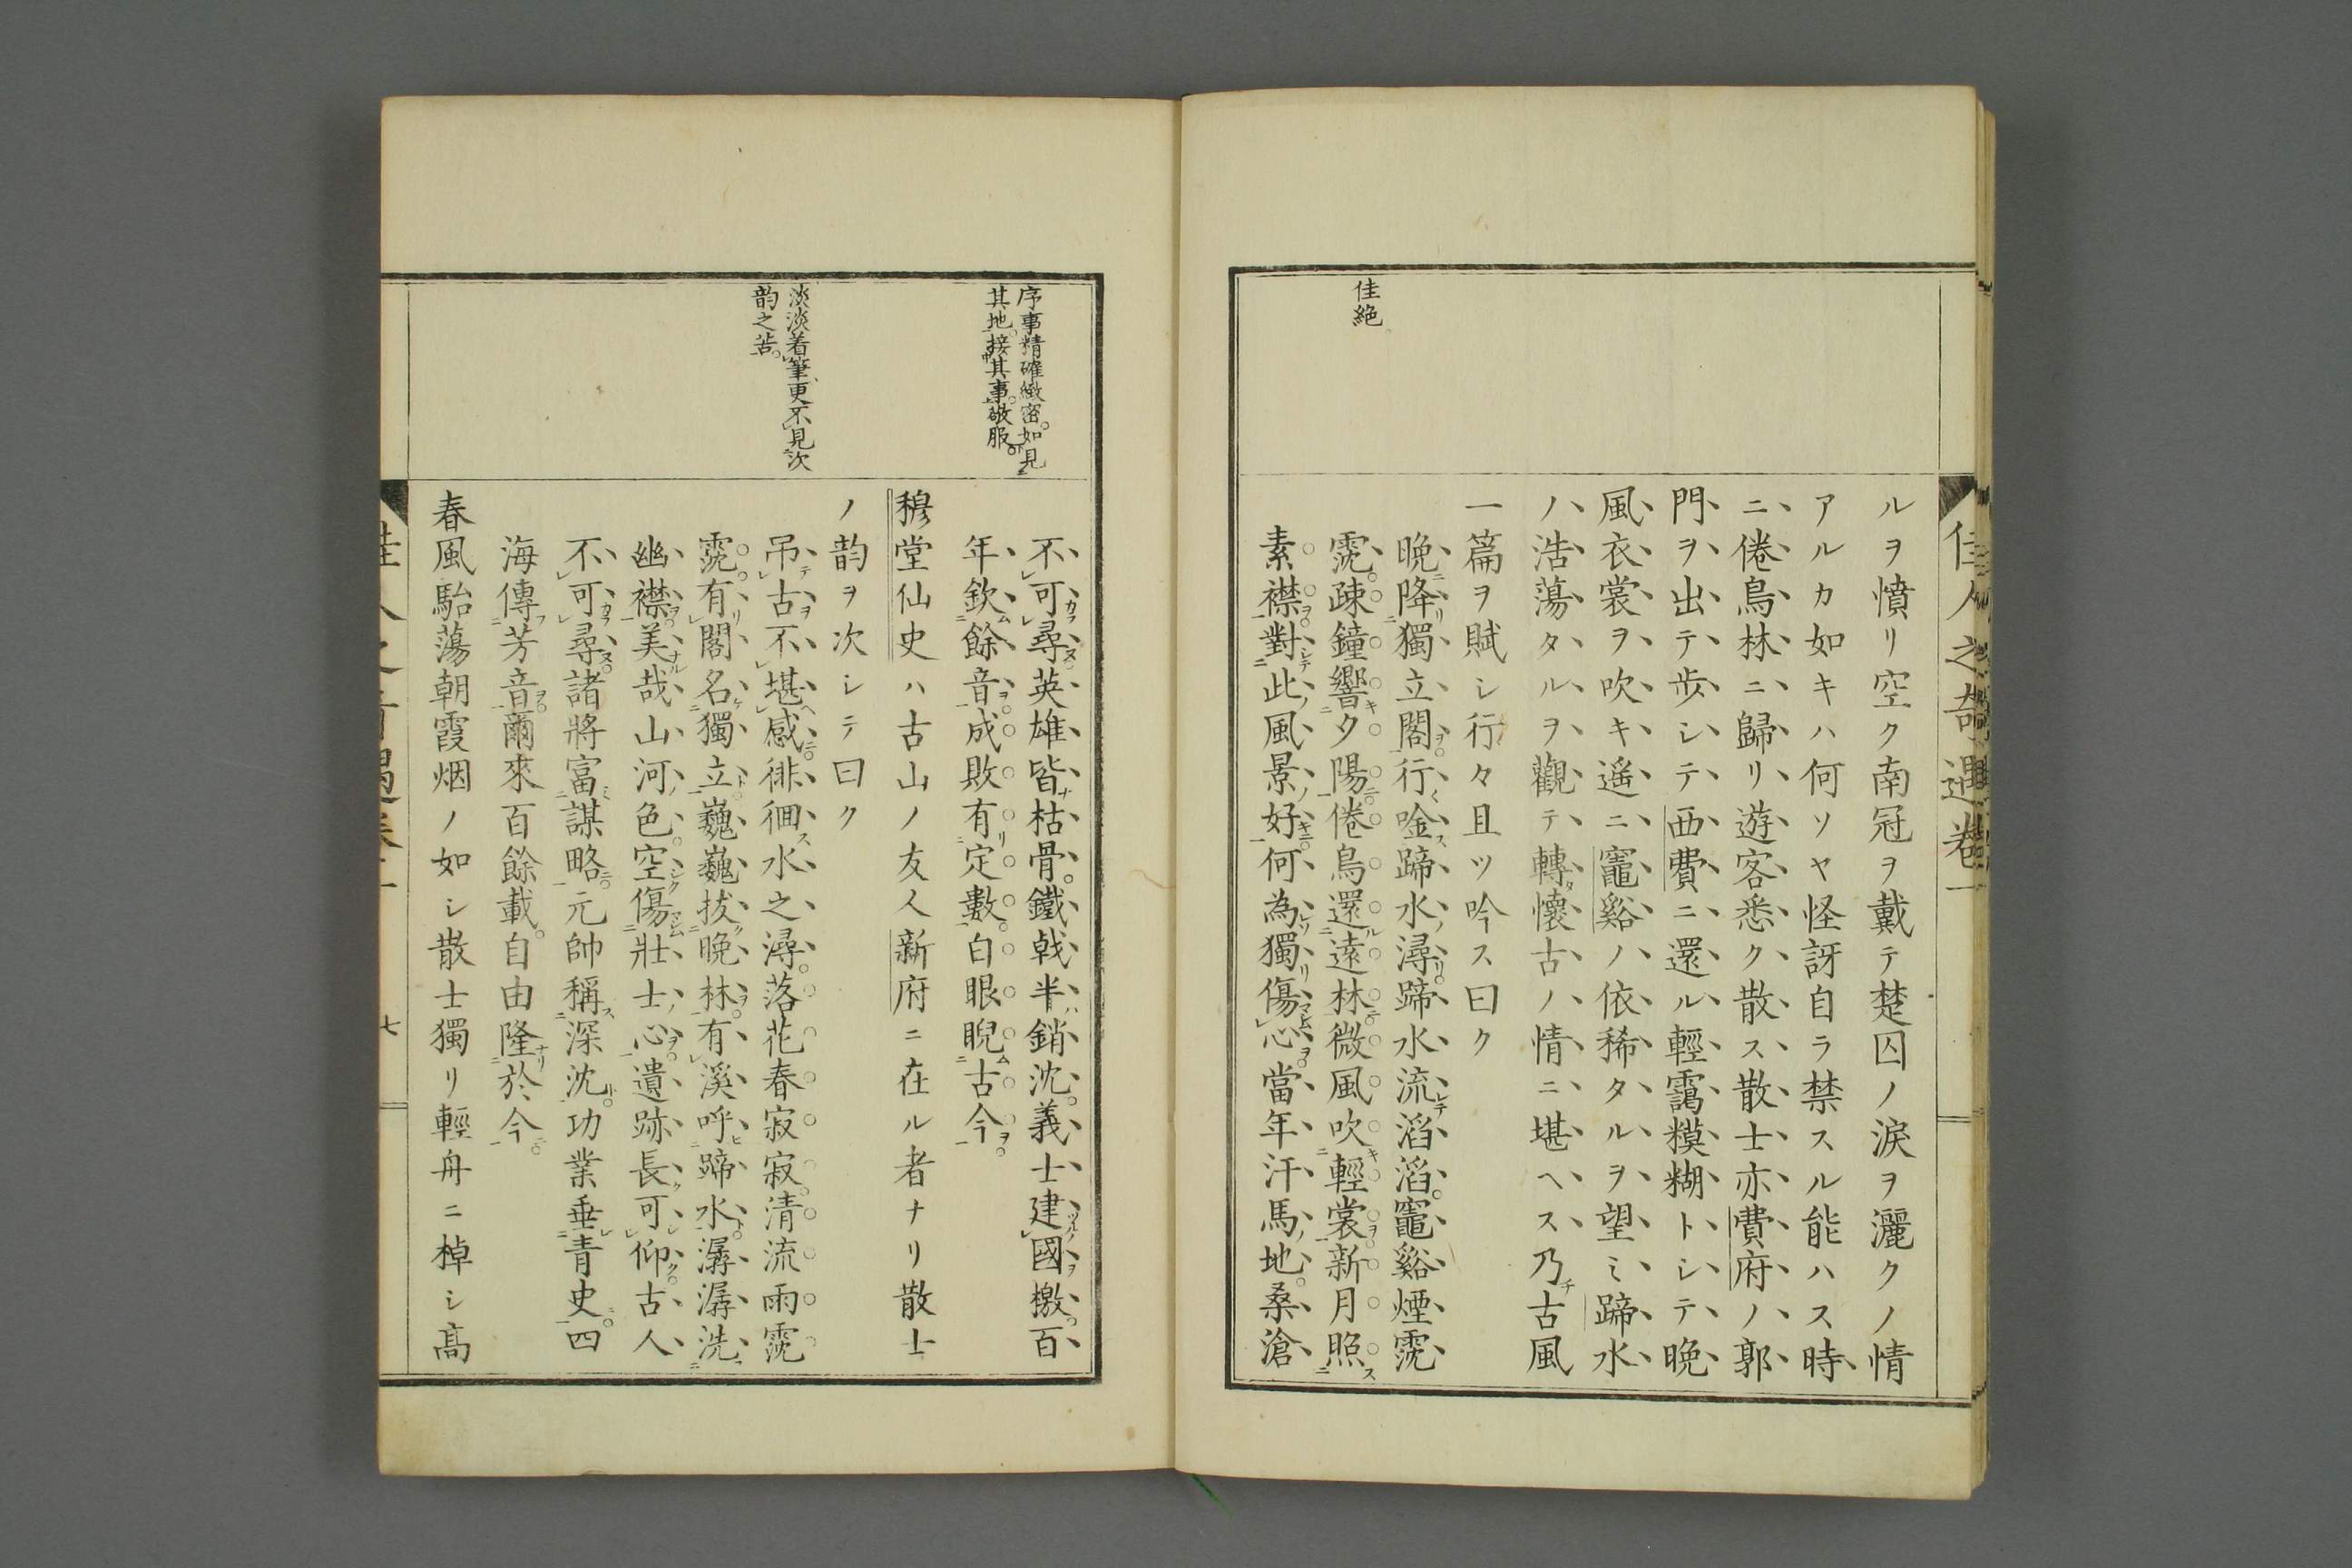 佳人之奇遇卷一
佳絶
ルヲ憤リ空ク南冠ヲ戴テ楚囚ノ淚ヲ灑クノ情
アルカ如キハ何ソヤ怪訝自ラ禁スル能ハス時
ニ倦鳥林ニ歸リ遊客悉ク散ス散士亦費府ノ郭
門ヲ出テ歩シテ西費ニ還ル輕靄糢糊トシテ晩
風衣裳ヲ吹キ遙ニ竈谿ノ依稀タルヲ望ミ蹄水
ノ浩蕩タルヲ觀テ轉タ懷古ノ情ニ堪ヘス乃チ古風
一篇ヲ賦シ行々且ツ吟ス曰ク
晩降獨立閣行唫蹄水潯蹄水流滔滔竈谿煙霓
霓疎鐘響夕陽倦鳥還遠林微風吹輕裳新月照
素襟對此風景好何為獨傷心當年汗馬地桑滄
序事精確緻密如見
其地接其事敬服
淡淡着筆更不見次
韵之苦
不可尋英雄皆枯骨鐵戟半銷沈義士建國檄百
年欽餘音成敗有定數白眼睨古今
穆堂仙史ハ古山ノ友人新府ニ在ル者ナリ散士
ノ韵ヲ次シテ曰ク
吊古不堪感徘徊水之潯落花春寂寂清流雨霓
霓有閣名獨立巍巍拔晩林有溪呼蹄水潺潺洗
幽襟美哉山河色空傷壯士心遺跡長可仰古人
不可尋諸將富謀略元帥稱深沈功業垂青史四
海傳芳音爾來百餘載自由隆於今
春風駘蕩朝霞烟ノ如シ散士獨リ輕舟ニ棹シ高
七